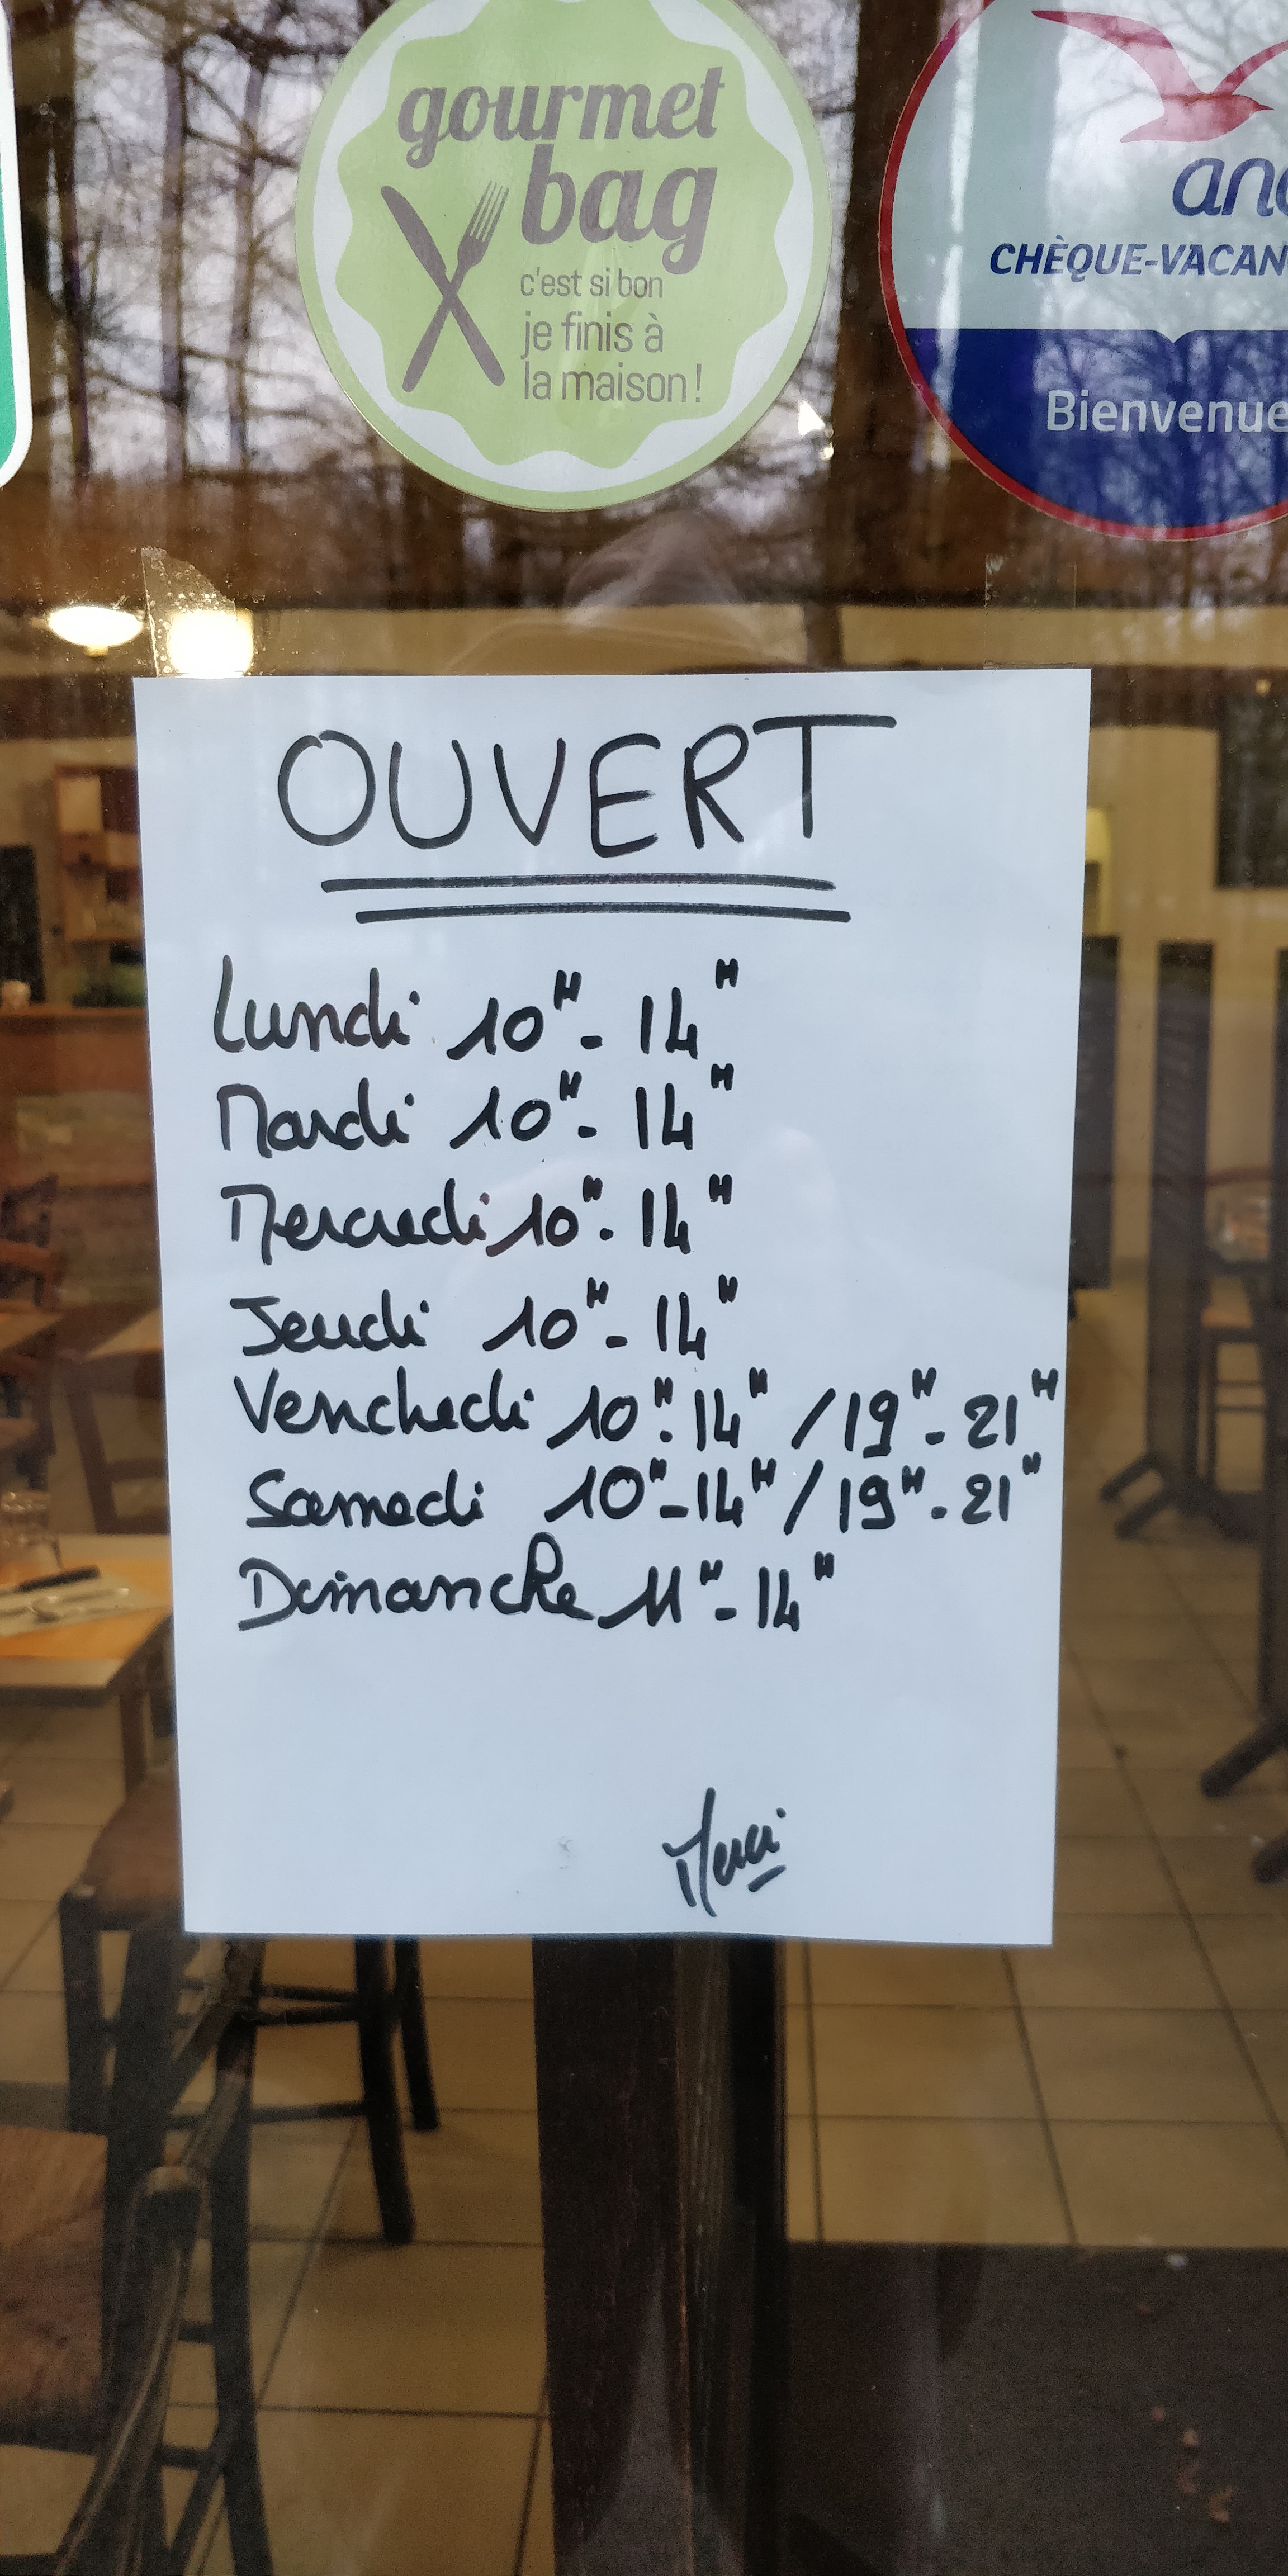 gourmet
bag
c'est si bon
je finis à
la maison !
anc
CHÈQUE-VACAN
Bienvenue
OUVERT
Lundi 10H - 14H
Mardi 10H - 14H
Mercredi 10H - 14H
Jeudi 10H - 14H
Vendredi 10H - 14H / 19H - 21H
Samedi 10H - 14H / 19H - 21H
Dimanche 11H - 14H
Merci